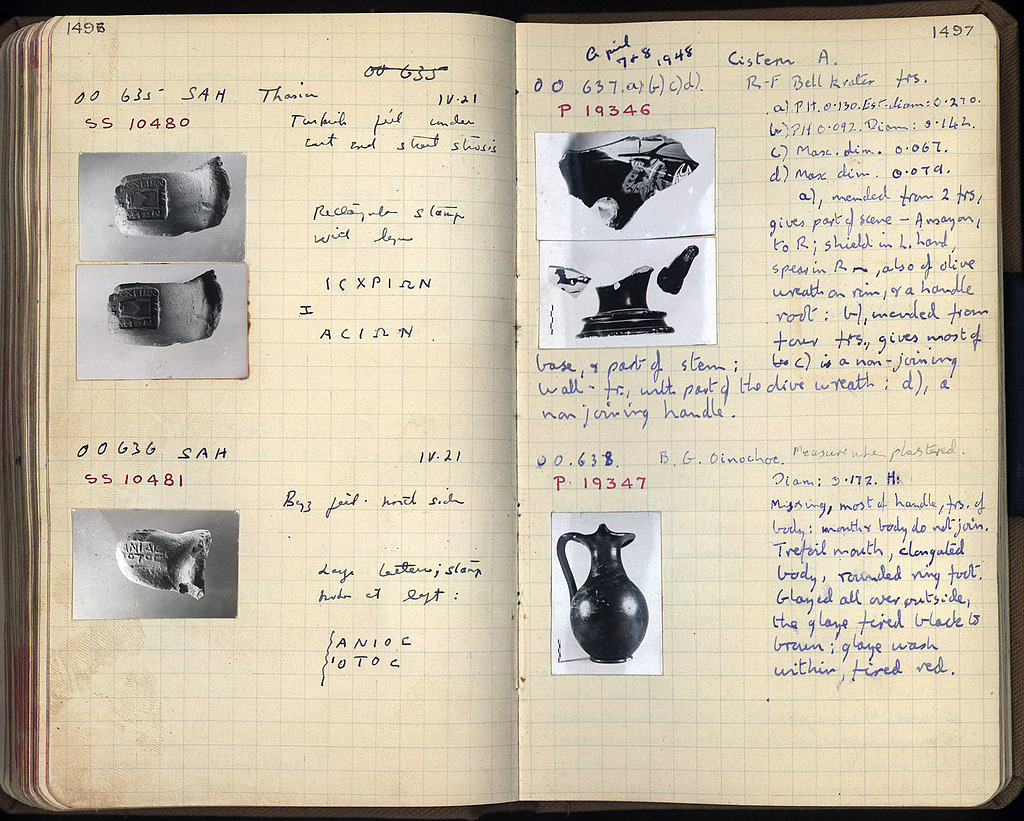 1496
OO 635
OO 635 SAH Thasian IV.21
SS 10480
Turkish fill under
and street stosis
Rectangular stamp
with
ΙϹΧΡΙΩΝ
Σ
ΑϹΙΩΝ
OO 636 SAH IV.21
SS 10481
Byz fill. north side
Large letters; stamp
at left:
ΑΝΙΟϹ
ΟΤΟϹ
1497
April 7+8, 1948
Cistern A.
OO 637. a) b) c) d). R-F Bell krater frs.
P 19346
a) P.H. 0.130. Est. diam: 0.270.
b) P.H 0.092. Diam: 0.142.
c) Max. dim. 0.067.
d) Max dim. 0.079.
a), mended from 2 frs,
gives part of scene - Amazon,
to R; shield in L. hand,
spear in R -, also of olive
wreath on rim, & a handle
root: b), mended from
four frs., gives most of
base, & part of stem; c) is a non-joining
wall-fr., with part of the olive wreath: d), a
non joining handle.
OO.638. B.G. Oinochoe. Measure when plastered.
P 19347
Diam: 0.172. H:
Missing, most of handle, frs. of
body: mouth & body do not join.
Trefoil mouth, elongated
body, rounded ring foot.
Glazed all over outside,
the glaze fired black to
brown; glaze wash
within, fired red.